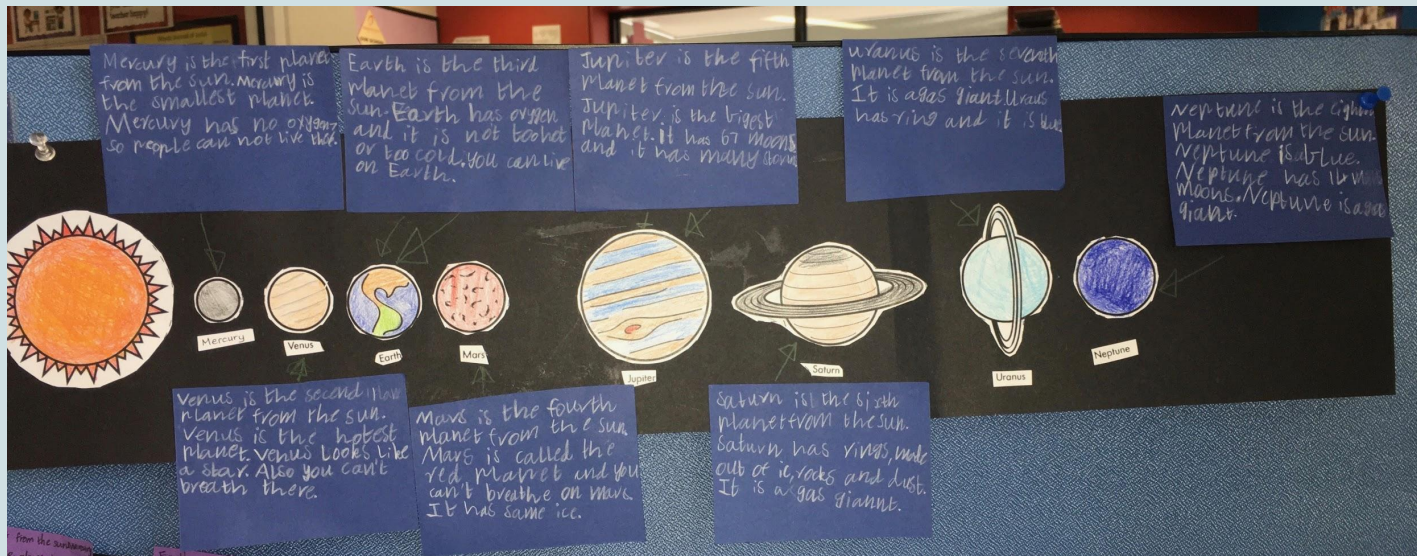 Mercury is the first planet
from the sun. Mercury is
the smallest planet.
Mercury has no oxygen
so people can not live there.
Earth is the third
planet from the
sun. Earth has oxygen
and it is not too hot
or too cold. You can live
on Earth.
Jupiter is the fifth
planet from the sun.
Jupiter is the biggest
planet. It has 67 moons
and it has many
Uranus is the seventh
planet from the sun.
It is a gas giant. Uraus
has ring and it is
Neptune is the eighth
planet from the sun.
Neptune is blue.
Neptune has
moons. Neptune is a gas
giant.
Mercury
Venus
Earth
Mars
Jupiter
Saturn
Uranus
Neptune
Venus is the second
planet from the sun.
Venus is the hotest
planet. Venus looks like
a star. Also you can't
breath there.
Mars is the fourth
planet from the sun.
Mars is called the
red planet and you
can't breathe on mars.
It has same ice.
Saturn is the sixth
planet from the sun.
Saturn has rings, made
out of ic, rocks and dust.
It is a gas giannt.
from the sun